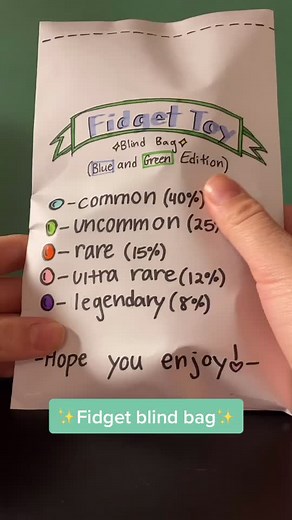 Fidget Toy
✧Blind Bag✧
(Blue and Green Edition)
- common (40%)
- uncommon (25
- rare (15%)
- ultra rare (12%)
- legendary (8%)
-Hope you enjoy!-
✨Fidget blind bag✨